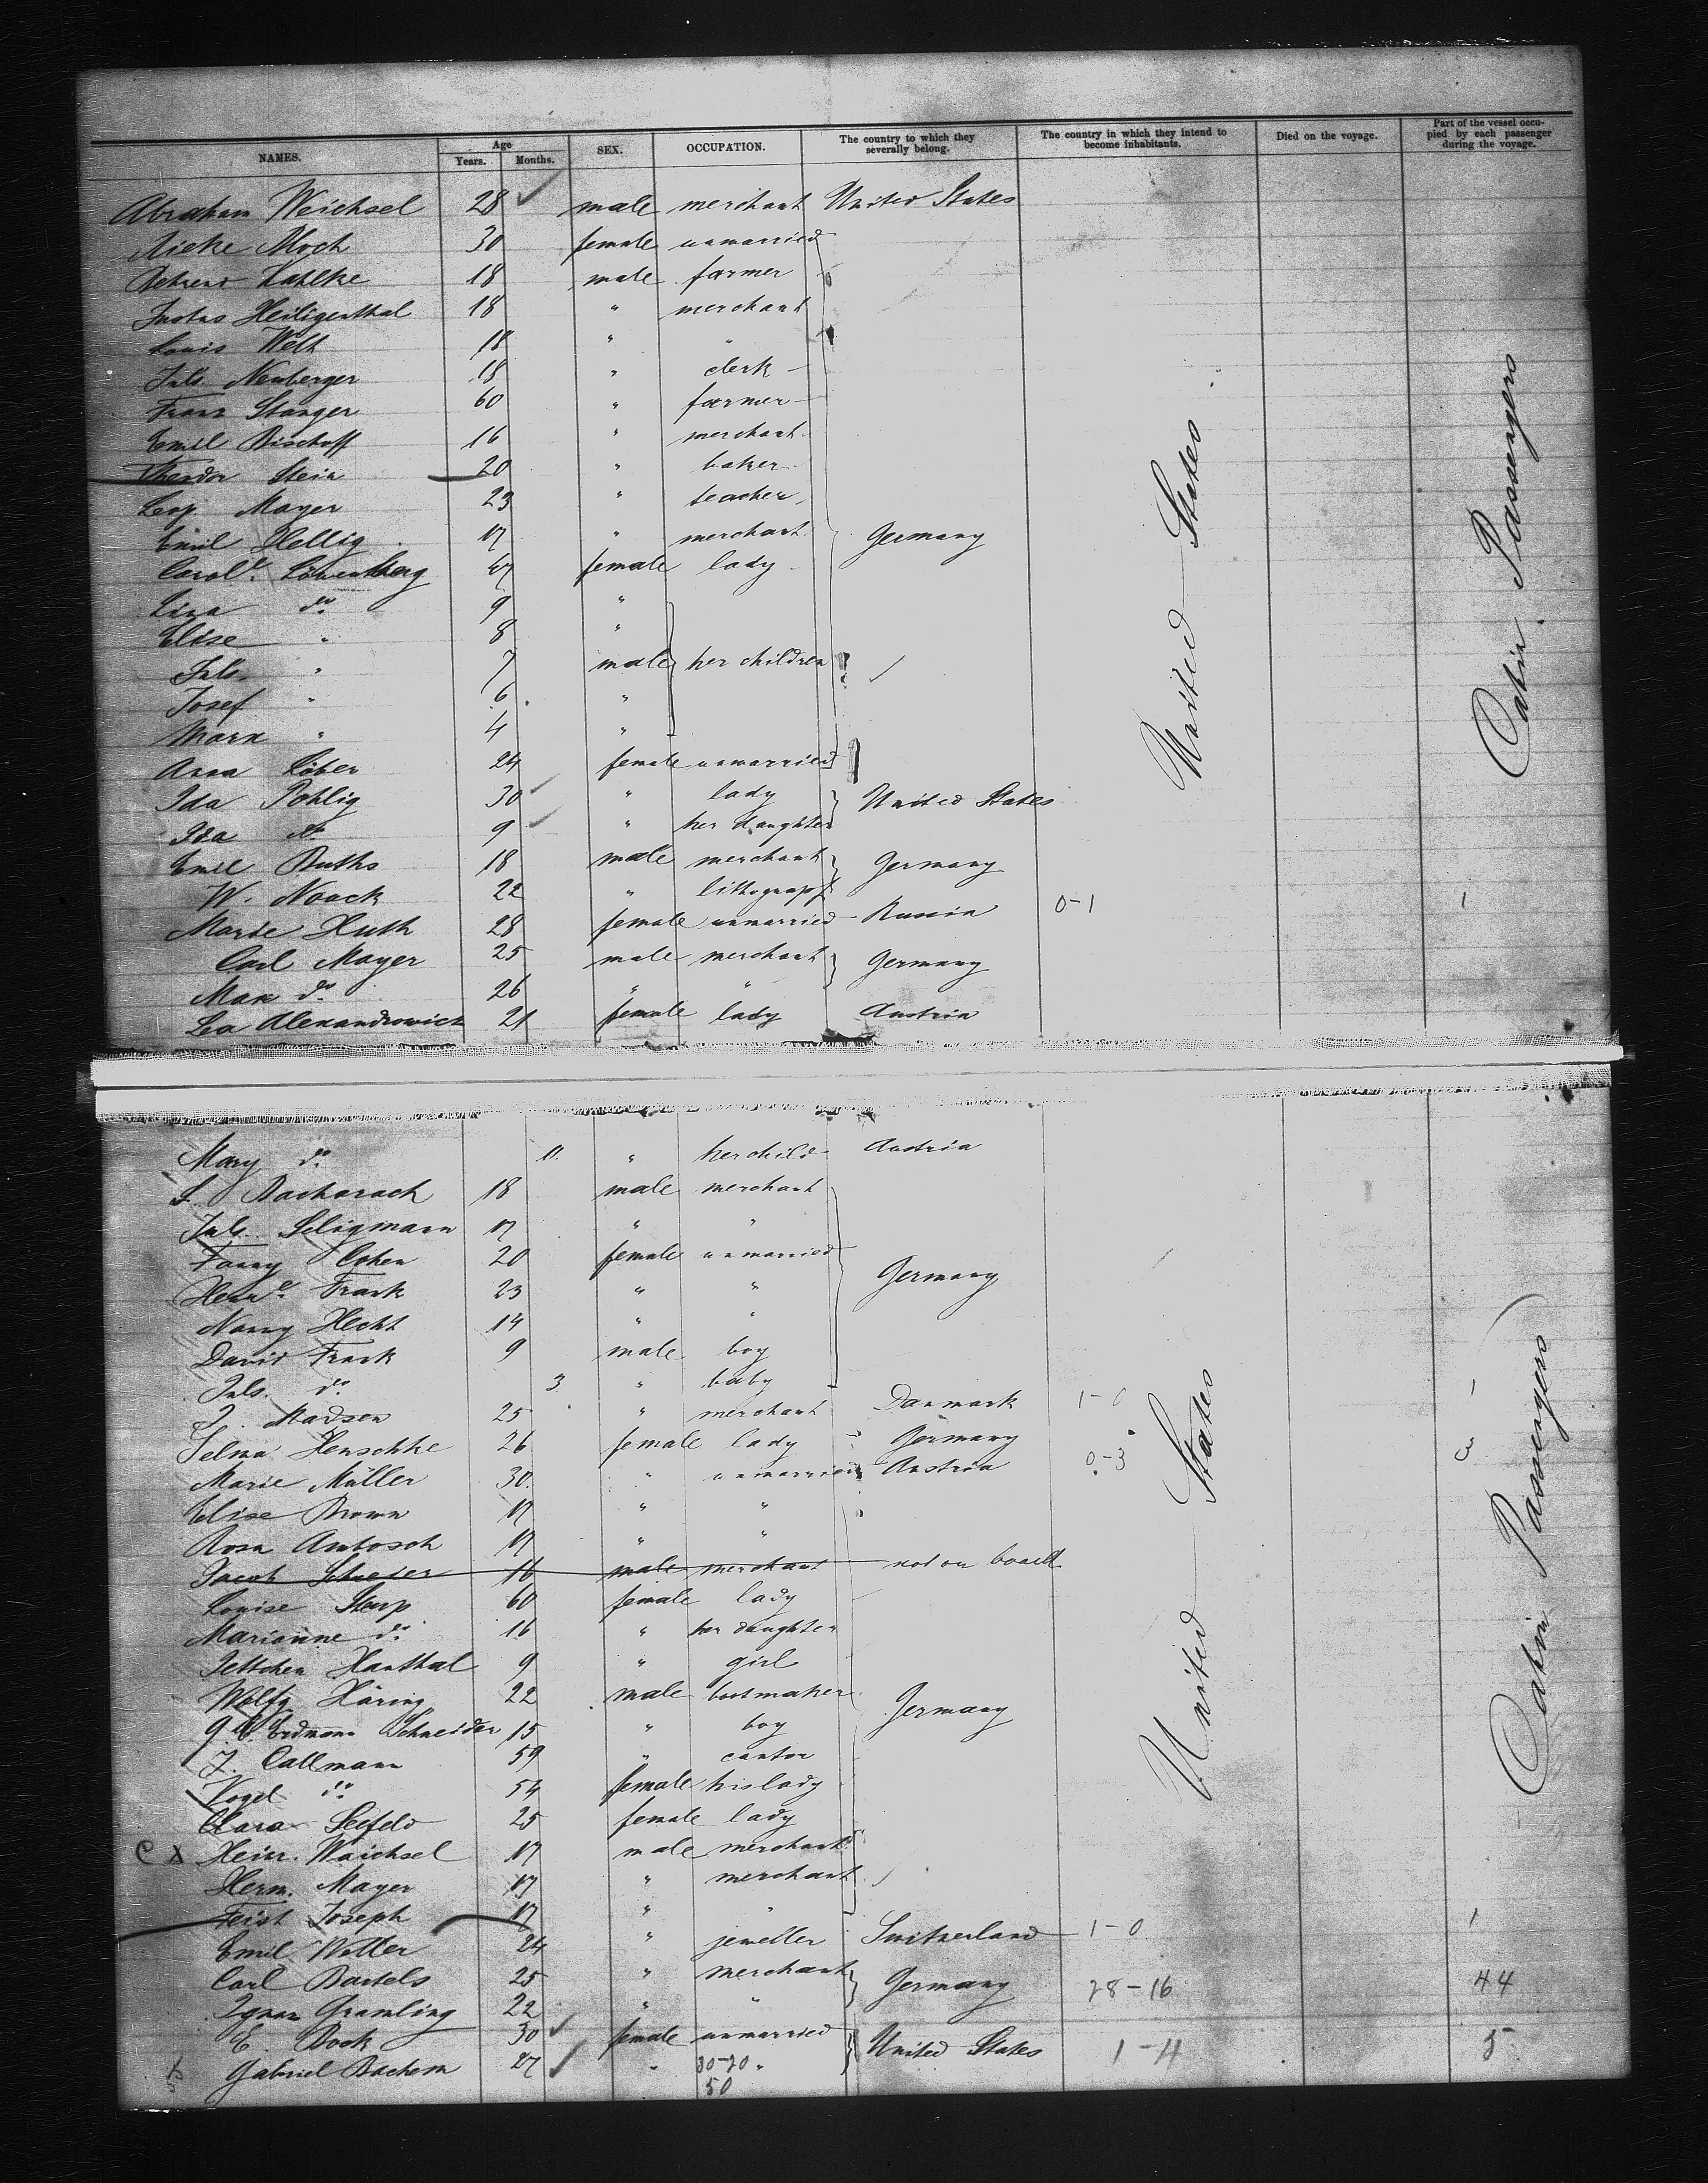 NAMES. Age Years. Months. SEX. OCCUPATION. The country to which they severally belong. The country in which they intend to become inhabitants. Died on the voyage. Part of the vessel occupied by each passenger during the voyage.
Abraham Weichsel 28 male merchant United States
Rieke Moch 30 female unmarried
Behrend Kahlke 18 male farmer
Justus Heiligenthal 18 " merchant
Louis Welt 18 " "
Juls. Neuberger 18 " clerk
Franz Stanger 60 " farmer
Emil Bischoff 16 " merchant
Theodor Stein 20 " baker
Leop. Mayer 23 " teacher
Emil Hellig 17 " merchant Germany
Carole. Löwenberg 47 female lady
Lina do. 9 "
Elise " 8 "
Juls. " 7 male her children
Josef " 6 "
Marx " 4 "
Anna Löber 24 female unmarried
Ida Pohlig 30 " lady United States
Ida do. 9 " her daughter
Emil Buths 18 male merchant Germany
W. Noack 22 " lithograpf
Marie Huth 28 female unmarried Russia 0-1 1
Carl Mayer 25 male merchant Germany
Max do. 26 " "
Lea Alexandrowicz 21 female lady Austria
United States
Cabin Passengers
Mary do. 11. " her child Austria
S. Bacharach 18 male merchant
Juls. Seligmann 17 " "
Fanny Cohen 20 female unmarried
Henre. Frank 23 " " Germany
Nanny Hecht 14 " "
David Frank 9 male boy
Juls. do. 3 " baby
J. Madsen 25 " merchant Danmark 1-0 1
Selma Henschke 26 female lady Germany
Marie Müller 30. " unmarried Austria 0-3 3
Elise Brown 17 " "
Rosa Ambosch 17 " "
Jacob Schneier 16 male merchant not on board
Louise Stamp 60 female lady
Marianne do. 16 " her daughter
Jettchen Hanthal 9 " girl
Wolfg Häring 22 male bootmaker Germany
G. C. Erdmann Schneider 15 " boy
J. Callmann 59 " cantor
Vogel do. 54 female his lady
Clara Seefeld 25 female lady
C X Heinr. Waichsel 17 male merchant
Herm. Mayer 17 " merchant
Feist Joseph 17 " "
Emil Walter 24 " jeweller Switzerland 1-0 1
Carl Bartels 25 " merchant Germany 28-16 44
Ignaz Gramling 22 " "
E. Book 30 female unmarried United States 1-4 5
Gabriel Bachem 27 " 30-20 "
50
United States
Cabin Passengers